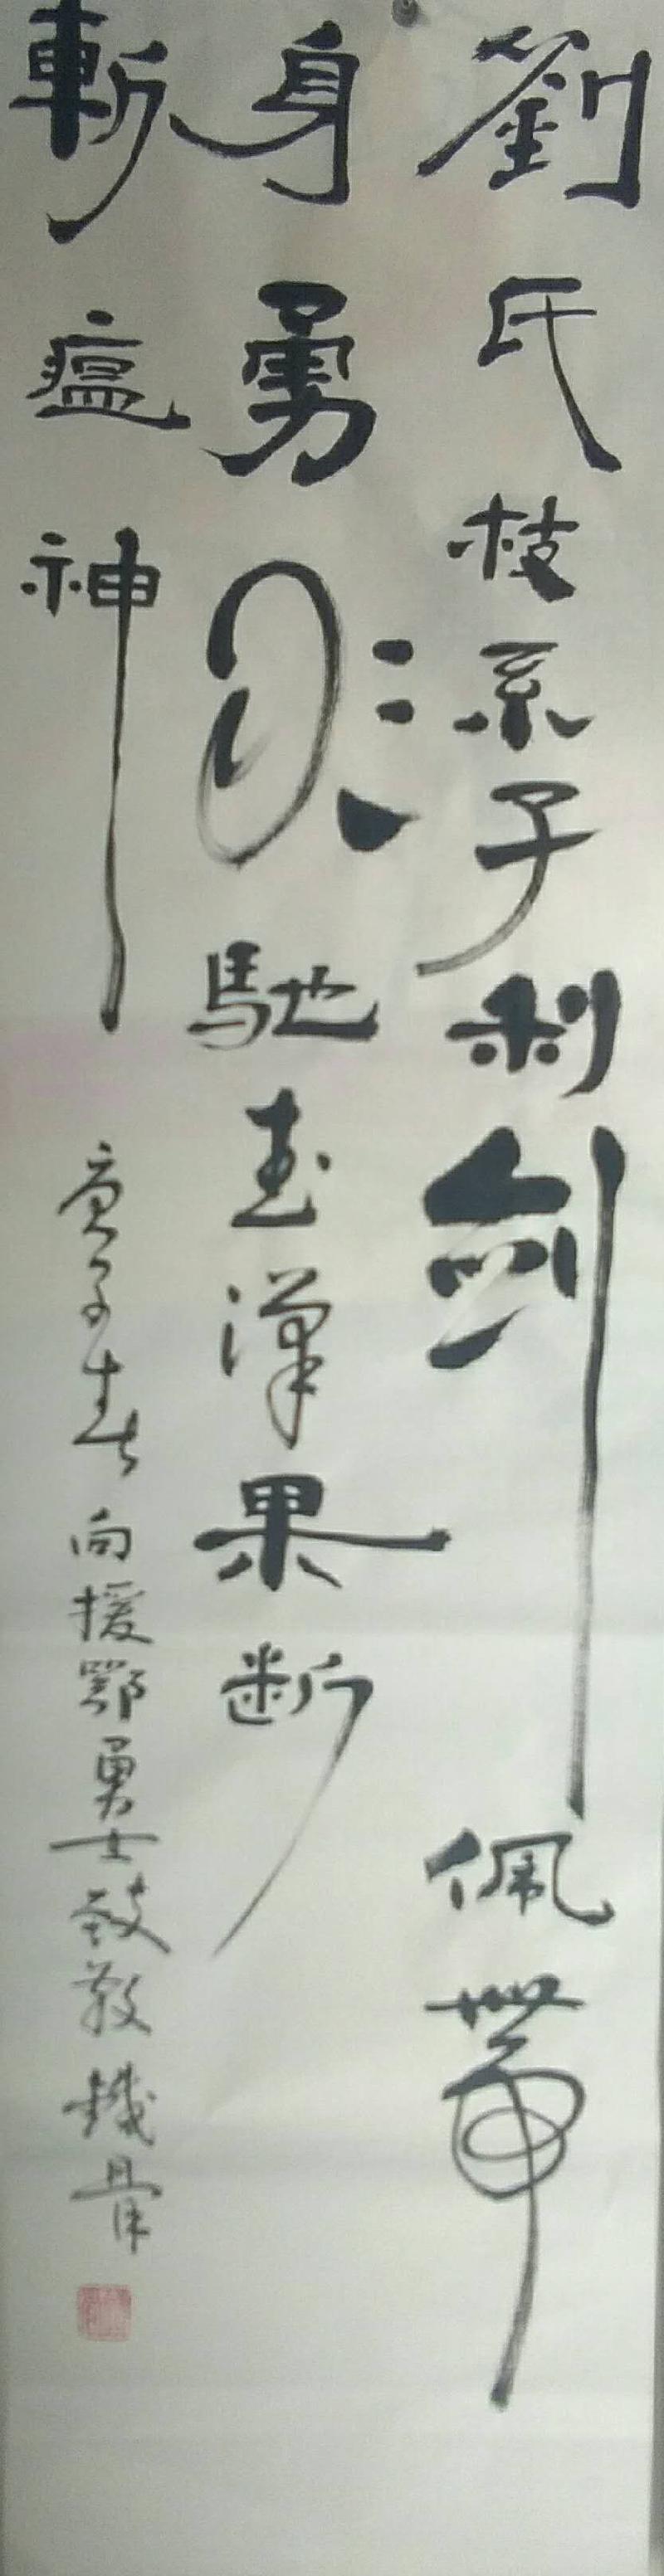 劉氏枝系子利劍佩帶
身勇馳武漢果断
斬瘟神
庚子春向援鄂勇士致敬鐵骨